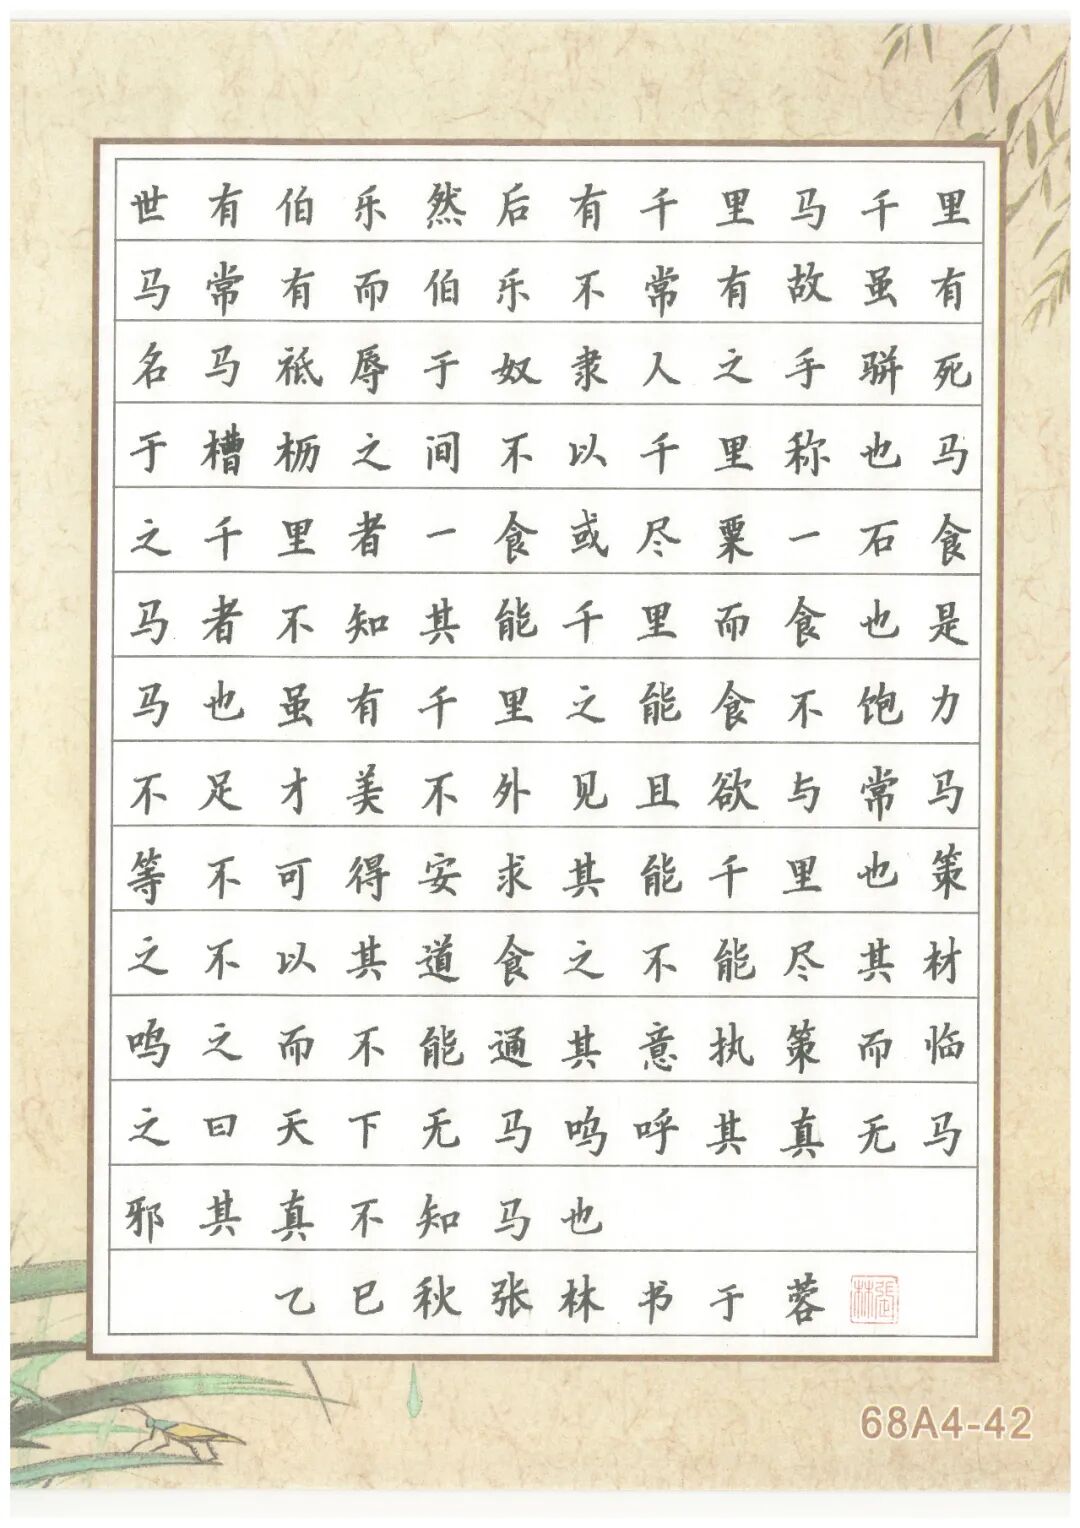 世有伯乐然后有千里马千里
马常有而伯乐不常有故虽有
名马祗辱于奴隶人之手骈死
于槽枥之间不以千里称也马
之千里者一食或尽粟一石食
马者不知其能千里而食也是
马也虽有千里之能食不饱力
不足才美不外见且欲与常马
等不可得安求其能千里也策
之不以其道食之不能尽其材
鸣之而不能通其意执策而临
之曰天下无马呜呼其真无马
邪其真不知马也
乙巳秋张林书于蓉
張林
68A4-42